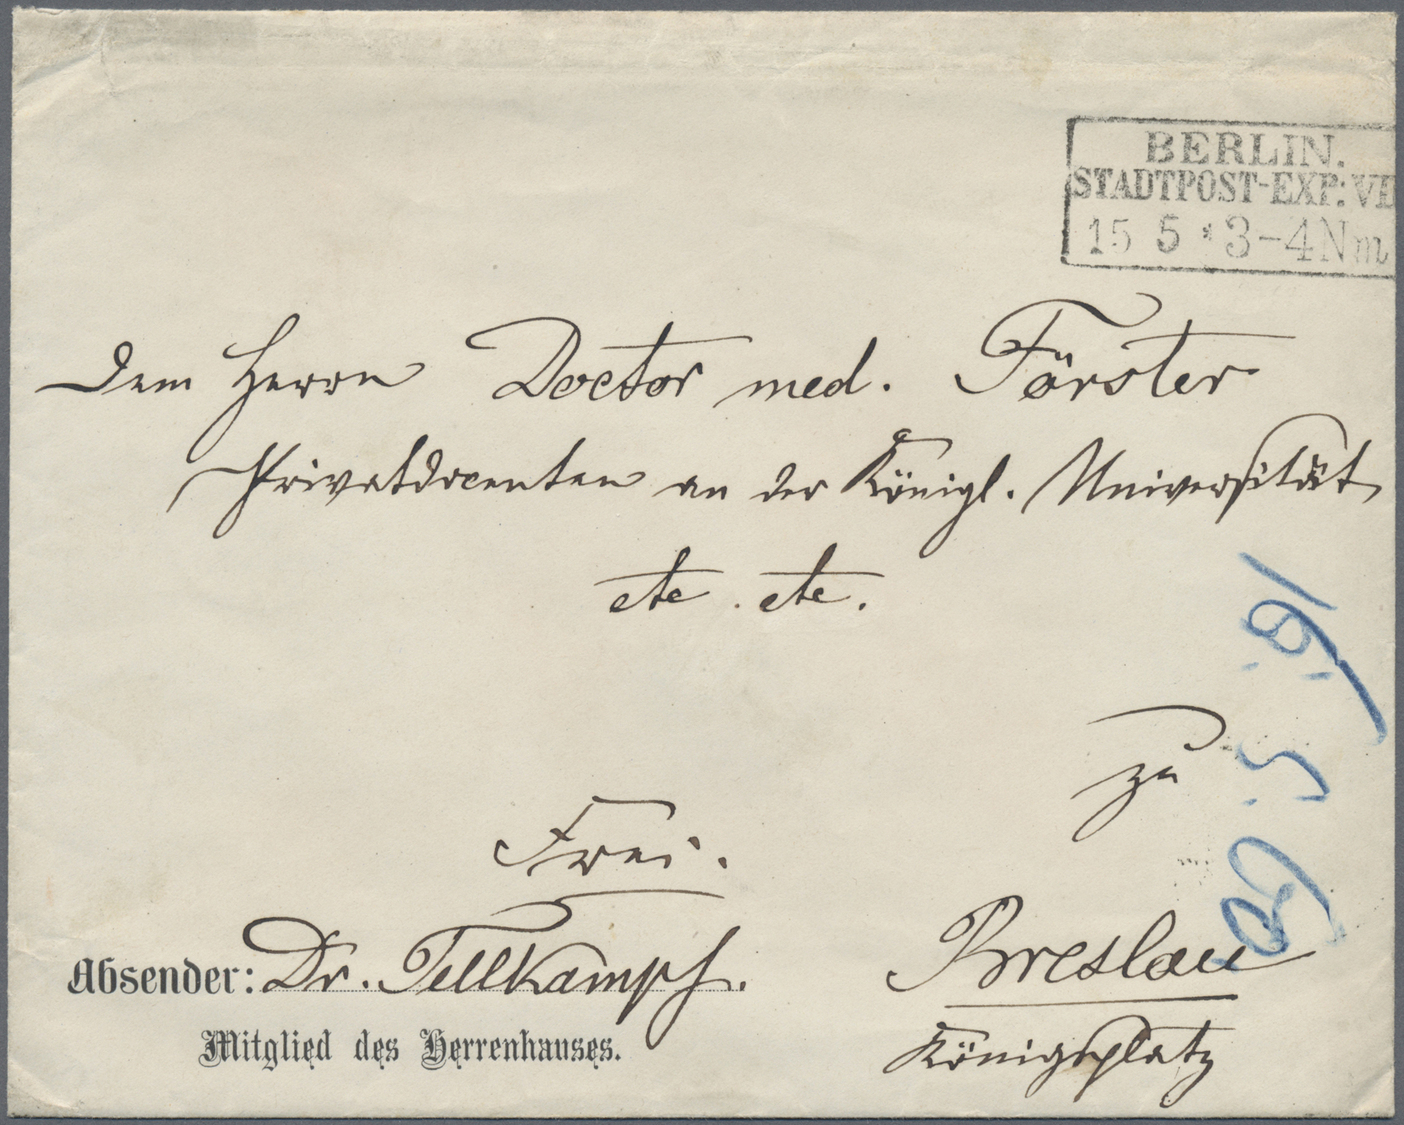 BERLIN.
STADTPOST-EXP: VII
15 5 * 3-4 Nm
Dem Herrn Doctor med. Förster
Privatdocenten an der Königl. Universität
etc. etc.
16. 5.
zu
Frei.
Absender: Dr. Tellkampf.
Breslau
Mitglied des Herrenhauses.
Königsplatz